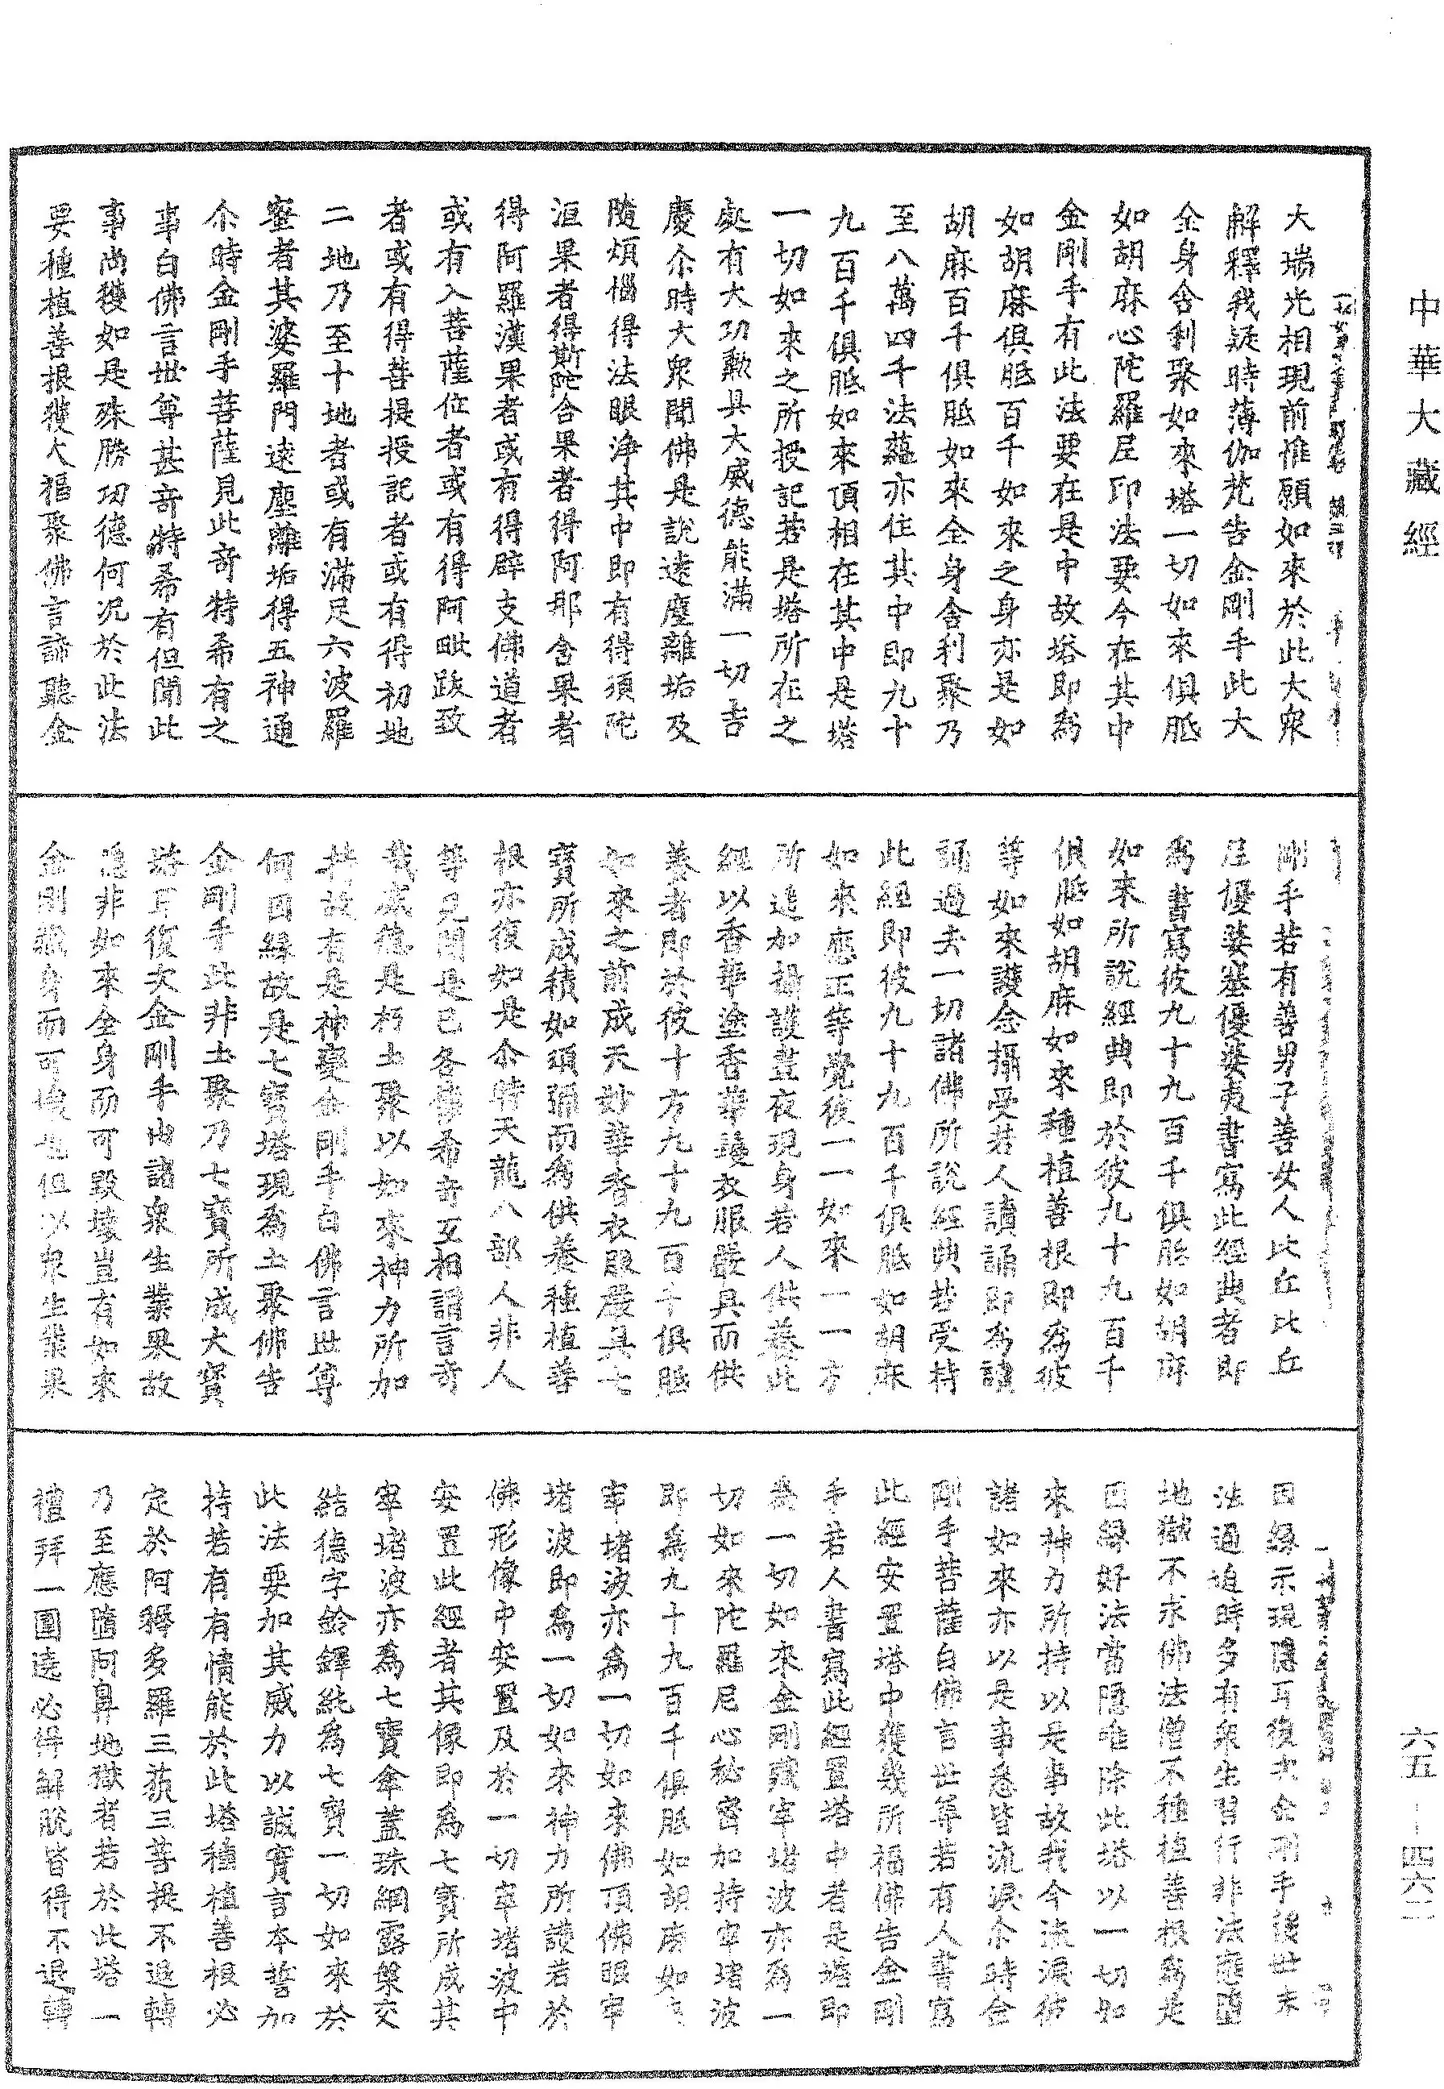 中華大藏經
大瑞光相現前惟願如來於此大衆
解釋我疑時薄伽梵告金剛手此大
全身舍利聚如來塔一切如來俱胝
如胡麻心陀羅尼印法要今在其中
金剛手有此法要在是中故塔即爲
如胡麻俱胝百千如來之身亦是如
胡麻百千俱胝如來全身舍利聚乃
至八萬四千法蘊亦住其中即九十
九百千俱胝如來頂相在其中是塔
一切如來之所授記若是塔所在之
處有大功勲具大威德能滿一切吉
慶尒時大衆聞佛是說遠塵離垢及
隨煩惱得法眼淨其中即有得須陀
洹果者得斯陀含果者得阿那含果者
得阿羅漢果者或有得辟支佛道者
或有入菩薩位者或有得阿毗跋致
者或有得菩提授記者或有得初地
二地乃至十地者或有滿足六波羅
蜜者其婆羅門遠塵離垢得五神通
尒時金剛手菩薩見此奇特希有之
事白佛言世尊甚奇特希有但聞此
事尚獲如是殊勝功德何況於此法
要種植善根獲大福聚佛言諦聽金
剛手若有善男子善女人比丘比丘
尼優婆塞優婆夷書寫此經典者即
爲書寫彼九十九百千俱胝如胡麻
如來所說經典即於彼九十九百千
俱胝如胡麻如來種植善根即爲彼
等如來護念攝受若人讀誦即爲讀
誦過去一切諸佛所說經典若受持
此經即彼九十九百千俱胝如胡麻
如來應正等覺彼一一如來一一方
所遥加攝護晝夜現身若人供養此
經以香華塗香華鬘衣服嚴具而供
養者即於彼十方九十九百千俱胝
如來之前成天妙華香衣服嚴具七
寶所成積如須彌而爲供養種植善
根亦復如是尒時天龍八部人非人
等見聞是已各懷希奇互相謂言奇
哉威德是朽土聚以如來神力所加
持故有是神變金剛手白佛言世尊
何因縁故是七寶塔現爲土聚佛告
金剛手此非土聚乃七寶所成大寶
塔耳復次金剛手由諸衆生業果故
隱非如來全身而可毀壞豈有如來
金剛藏身而可壞也但以衆生業果
因縁示現隱耳復次金剛手後世末
法逼迫時多有衆生習行非法應墮
地獄不求佛法僧不種植善根爲是
因縁妙法當隱唯除此塔以一切如
來神力所持以是事故我今流淚彼
諸如來亦以是事悉皆流淚尒時金
剛手菩薩白佛言世尊若有人書寫
此經安置塔中獲幾所福佛告金剛
手若人書寫此經置塔中者是塔即
爲一切如來金剛藏窣堵波亦爲一
切如來陀羅尼心秘密加持窣堵波
即爲九十九百千俱胝如胡麻如來
窣堵波亦爲一切如來佛頂佛眼窣
堵波即爲一切如來神力所護若於
佛形像中安置及於一切窣堵波中
安置此經者其像即爲七寶所成其
窣堵波亦爲七寶傘蓋珠網露槃交
結德字鈴鐸純爲七寶一切如來於
此法要加其威力以誠實言本誓加
持若有有情能於此塔種植善根必
定於阿耨多羅三藐三菩提不退轉
乃至應墮阿鼻地獄者若於此塔一
禮拜一圍遶必得解脫皆得不退轉
六五—四六二